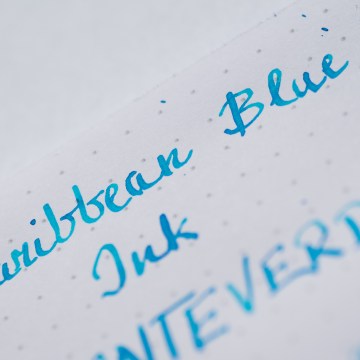 aribbean Blue
Ink
NTEVERD